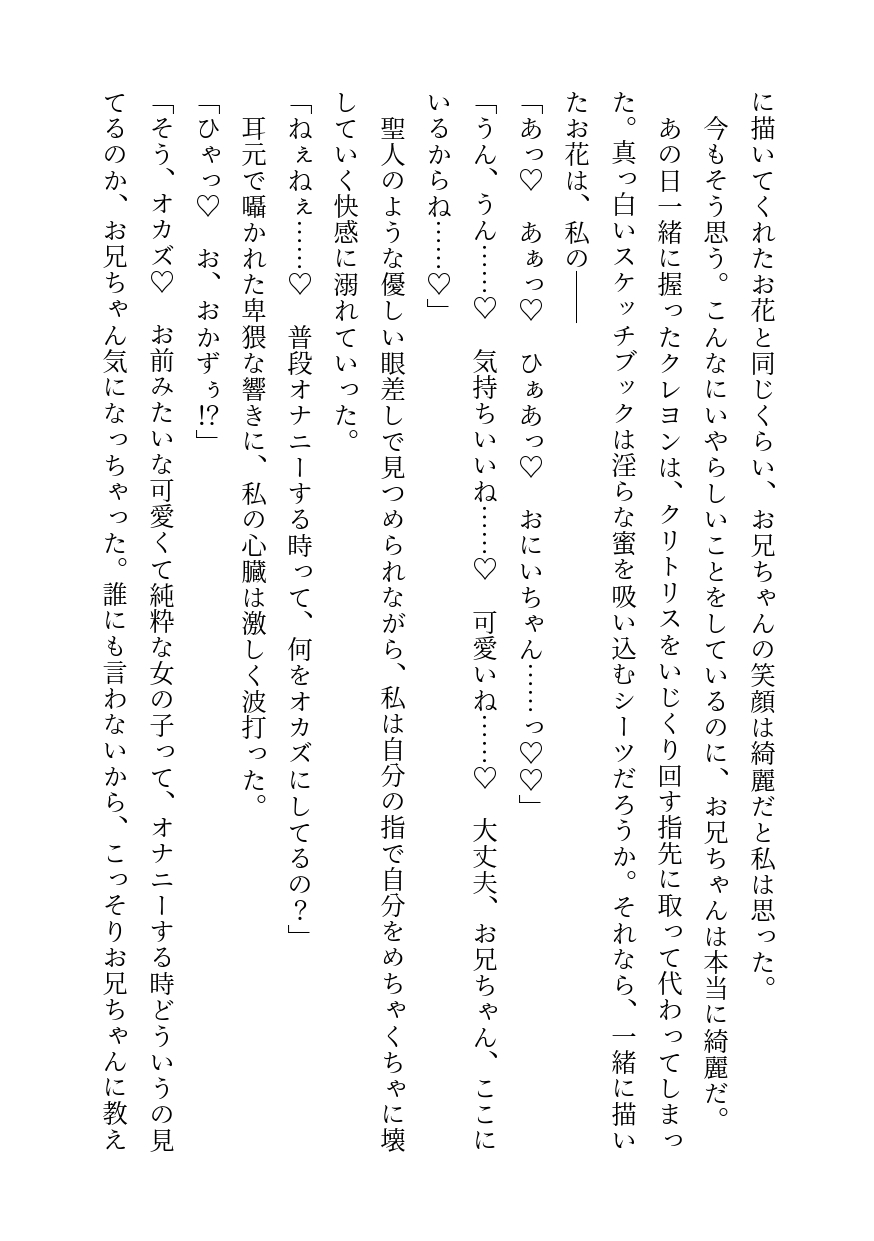 に描いてくれたお花と同じくらい、お兄ちゃんの笑顔は綺麗だと私は思った。
　今もそう思う。こんなにいやらしいことをしているのに、お兄ちゃんは本当に綺麗だ。
　あの日一緒に握ったクレヨンは、クリトリスをいじくり回す指先に取って代わってしまっ
た。真っ白いスケッチブックは淫らな蜜を吸い込むシーツだろうか。それなら、一緒に描い
たお花は、私の――
「あっ♡　あぁっ♡　ひぁあっ♡　おにいちゃん……っ♡♡」
「うん、うん……♡　気持ちいいね……♡　可愛いね……♡　大丈夫、お兄ちゃん、ここに
いるからね……♡」
　聖人のような優しい眼差しで見つめられながら、私は自分の指で自分をめちゃくちゃに壊
していく快感に溺れていった。
「ねぇねぇ……♡　普段オナニーする時って、何をオカズにしてるの？」
　耳元で囁かれた卑猥な響きに、私の心臓は激しく波打った。
「ひゃっ♡　お、おかずぅ!?」
「そう、オカズ♡　お前みたいな可愛くて純粋な女の子って、オナニーする時どういうの見
てるのか、お兄ちゃん気になっちゃった。誰にも言わないから、こっそりお兄ちゃんに教え